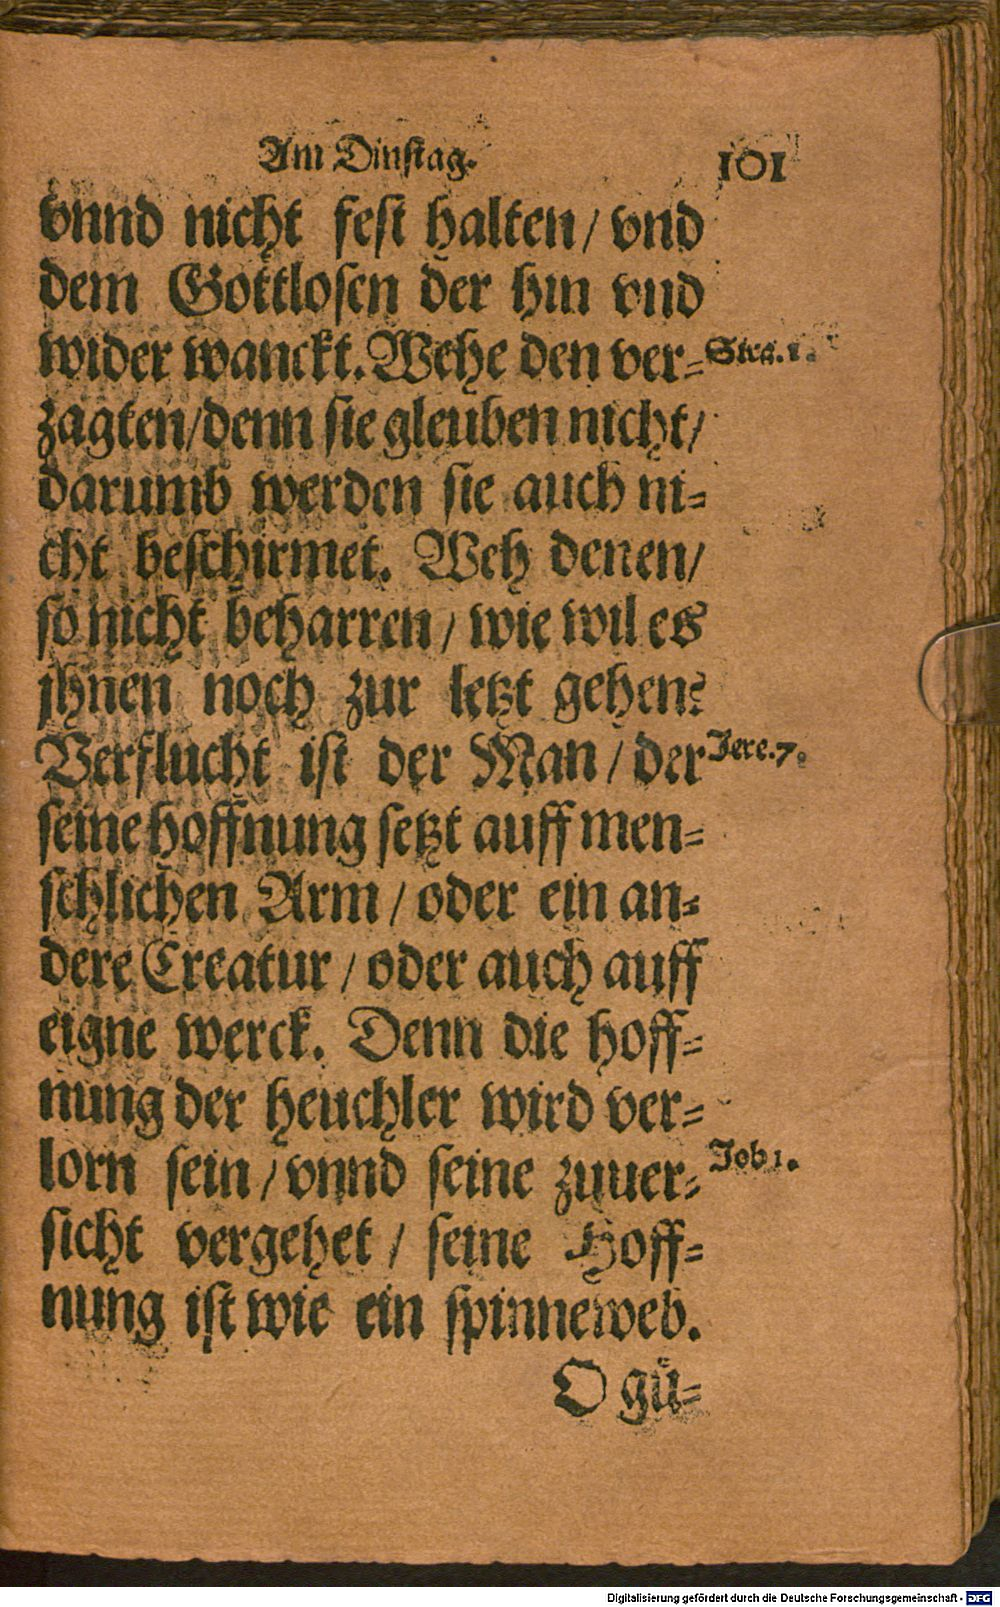 Am Dinstag. 101
vnnd nicht fest halten / vnd
dem Gottlosen der hin vnd
wider wanckt. Wehe den ver=
Sira. 1.
zagten / denn sie gleuben nicht /
darumb werden sie auch ni=
cht beschirmet. Weh denen /
so nicht beharren / wie wil es
jhnen noch zur letzt gehen?
Verflucht ist der Man / der
Jere. 7.
seine hoffnung setzt auff men=
schlichen Arm / oder ein an=
dere Creatur / oder auch auff
eigne werck. Denn die hoff=
nung der heuchler wird ver=
lorn sein / vnnd seine zuuer=
Job 1.
sicht vergehet / seine Hoff=
nung ist wie ein spinneweb.
O gü=
Digitalisierung gefördert durch die Deutsche Forschungsgemeinschaft - DFG